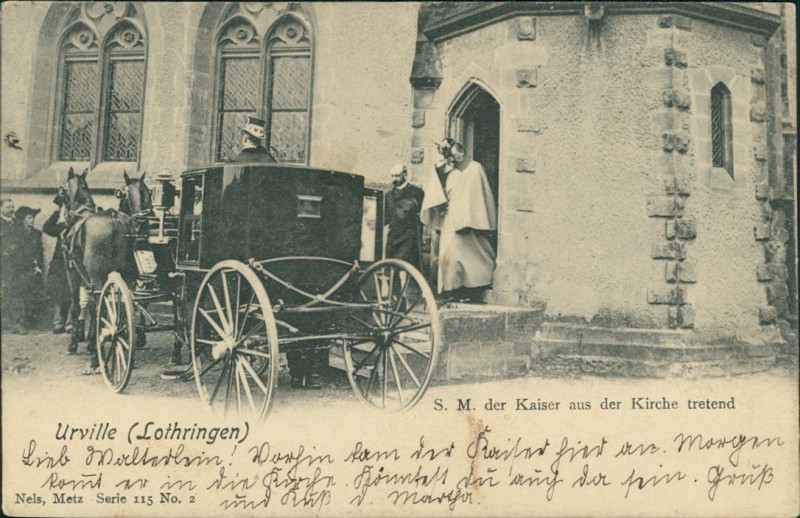 S. M. der Kaiser aus der Kirche tretend
Urville (Lothringen)
Lieb Walterlein! Vorhin kam der Kaiser hier an. Morgen
komt er in die Kirche. Könntest du auch da sein. Gruß
und Kuß d. Martha.
Nels, Metz Serie 115 No. 2